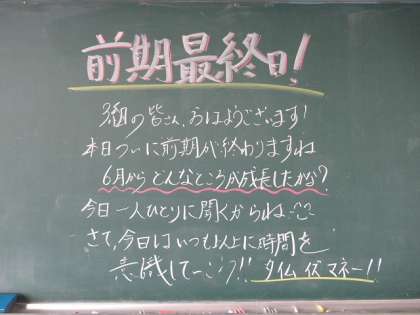 前期最終日!
3組の皆さん、おはようございます!
本日ついに前期が終わりますね
6月からどんなところが成長したかな?
今日一人ひとりに聞くからね
さて、今日はいつも以上に時間を
意識してこう!! タイムイズマネー!!